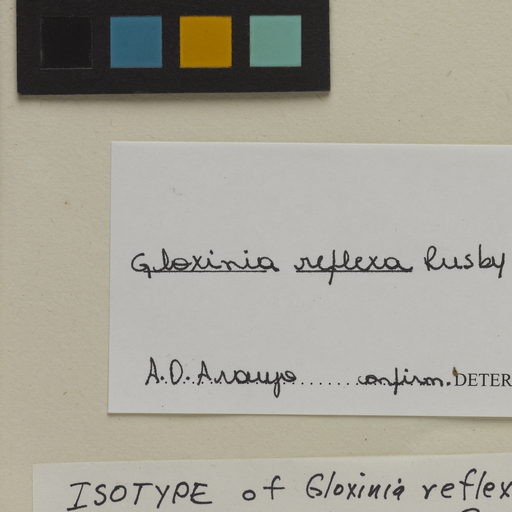 Gloxinia reflexa Rusby
A.O. Araujo ....... confirm. DETER
ISOTYPE of Gloxinia reflex